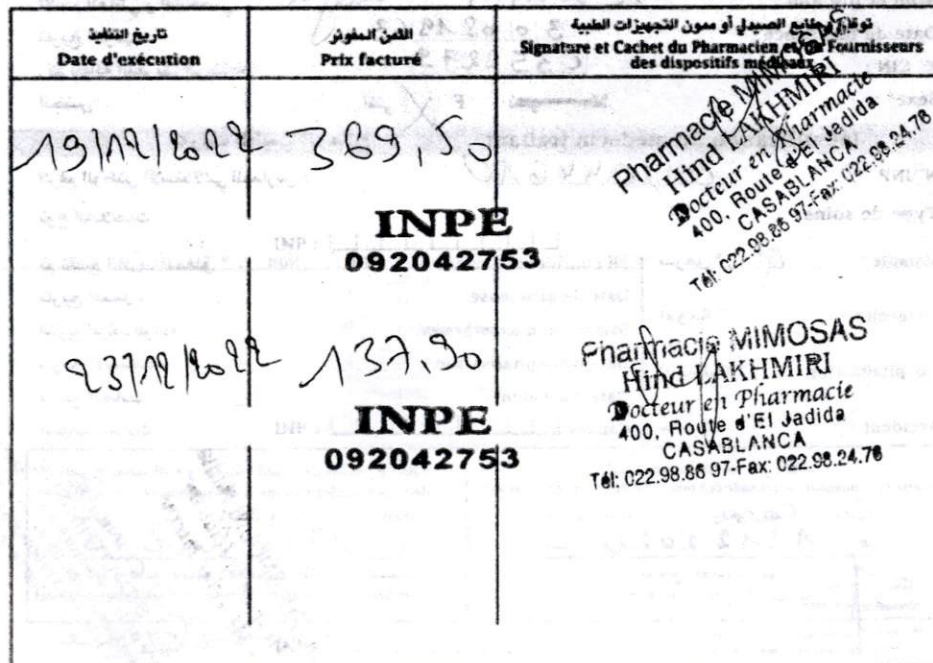 تاريخ التنفيذ
Date d'exécution
الثمن المفوتر
Prix facturé
توقيع وطابع الصيدلي أو ممون التجهيزات الطبية
Signature et Cachet du Pharmacien et/ou Fournisseurs
des dispositifs médicaux
19/12/2022
369,50
Pharmacie MIMOSAS
Hind LAKHMIRI
Docteur en Pharmacie
400, Route d'El Jadida
CASABLANCA
Tél: 022.98.86 97-Fax: 022.98.24.76
INPE
092042753
23/12/2022
137.90
Pharmacie MIMOSAS
Hind LAKHMIRI
Docteur en Pharmacie
400, Route d'El Jadida
CASABLANCA
Tél: 022.98.86 97-Fax: 022.98.24.76
INPE
092042753